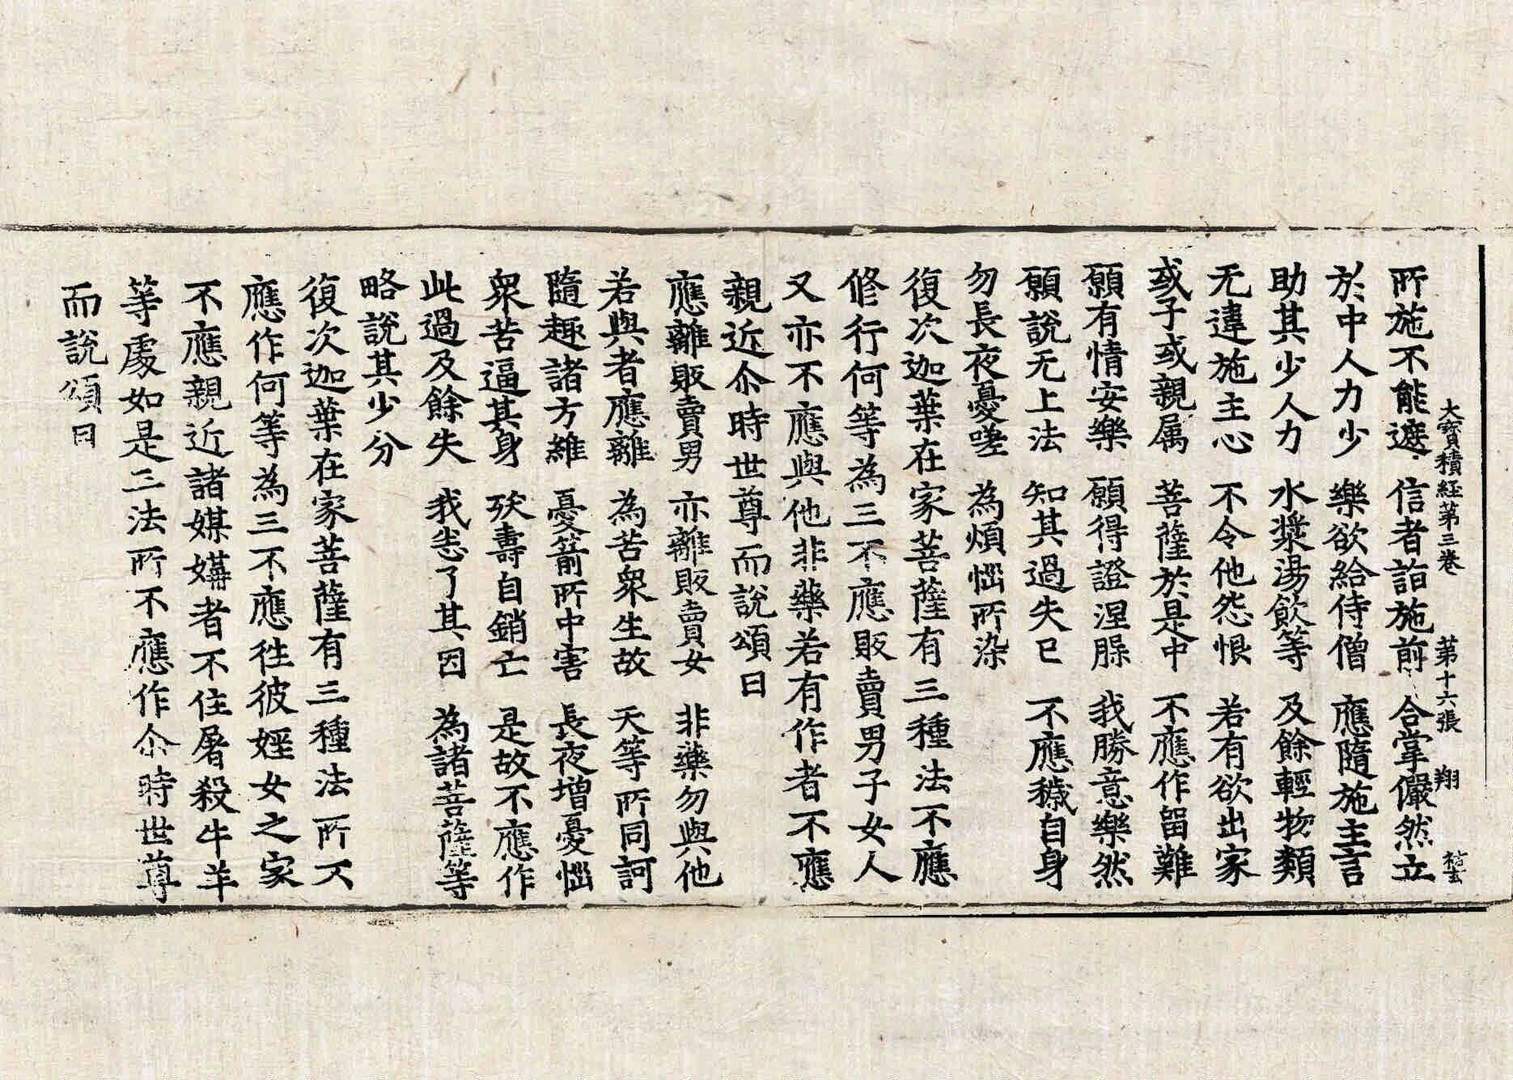 大寳積経第三巻 第十六張 翔
所施不能遮 信者詣施前 合掌儼然立
於中人力少 樂欲給侍僧 應隨施主言
助其少人力 水漿湯飲等 及餘輕物類
无違施主心 不令他怨恨 若有欲出家
或子或親属 菩薩於是中 不應作留難
願有情安樂 願得證涅槃 我勝意樂然
願說无上法 知其過失已 不應穢自身
勿長夜憂嗟 為煩惱所染
復次迦葉在家菩薩有三種法不應
修行何等為三不應販賣男子女人
又亦不應與他非藥若有作者不應
親近尒時世尊而說頌曰
應離販賣男 亦離販賣女 非藥勿與他
若與者應離 為苦衆生故 天等所同訶
隨趣諸方維 憂箭所中害 長夜增憂惱
衆苦逼其身 殀壽自銷亡 是故不應作
此過及餘失 我悉了其因 為諸菩薩等
略說其少分
復次迦葉在家菩薩有三種法所不
應作何等為三不應往彼婬女之家
不應親近諸媒媾者不住屠殺牛羊
等處如是三法所不應作尒時世尊
而說頌曰